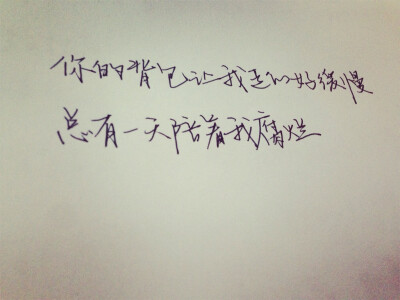 你的背包让我走的好缓慢
总有一天陪着我腐烂